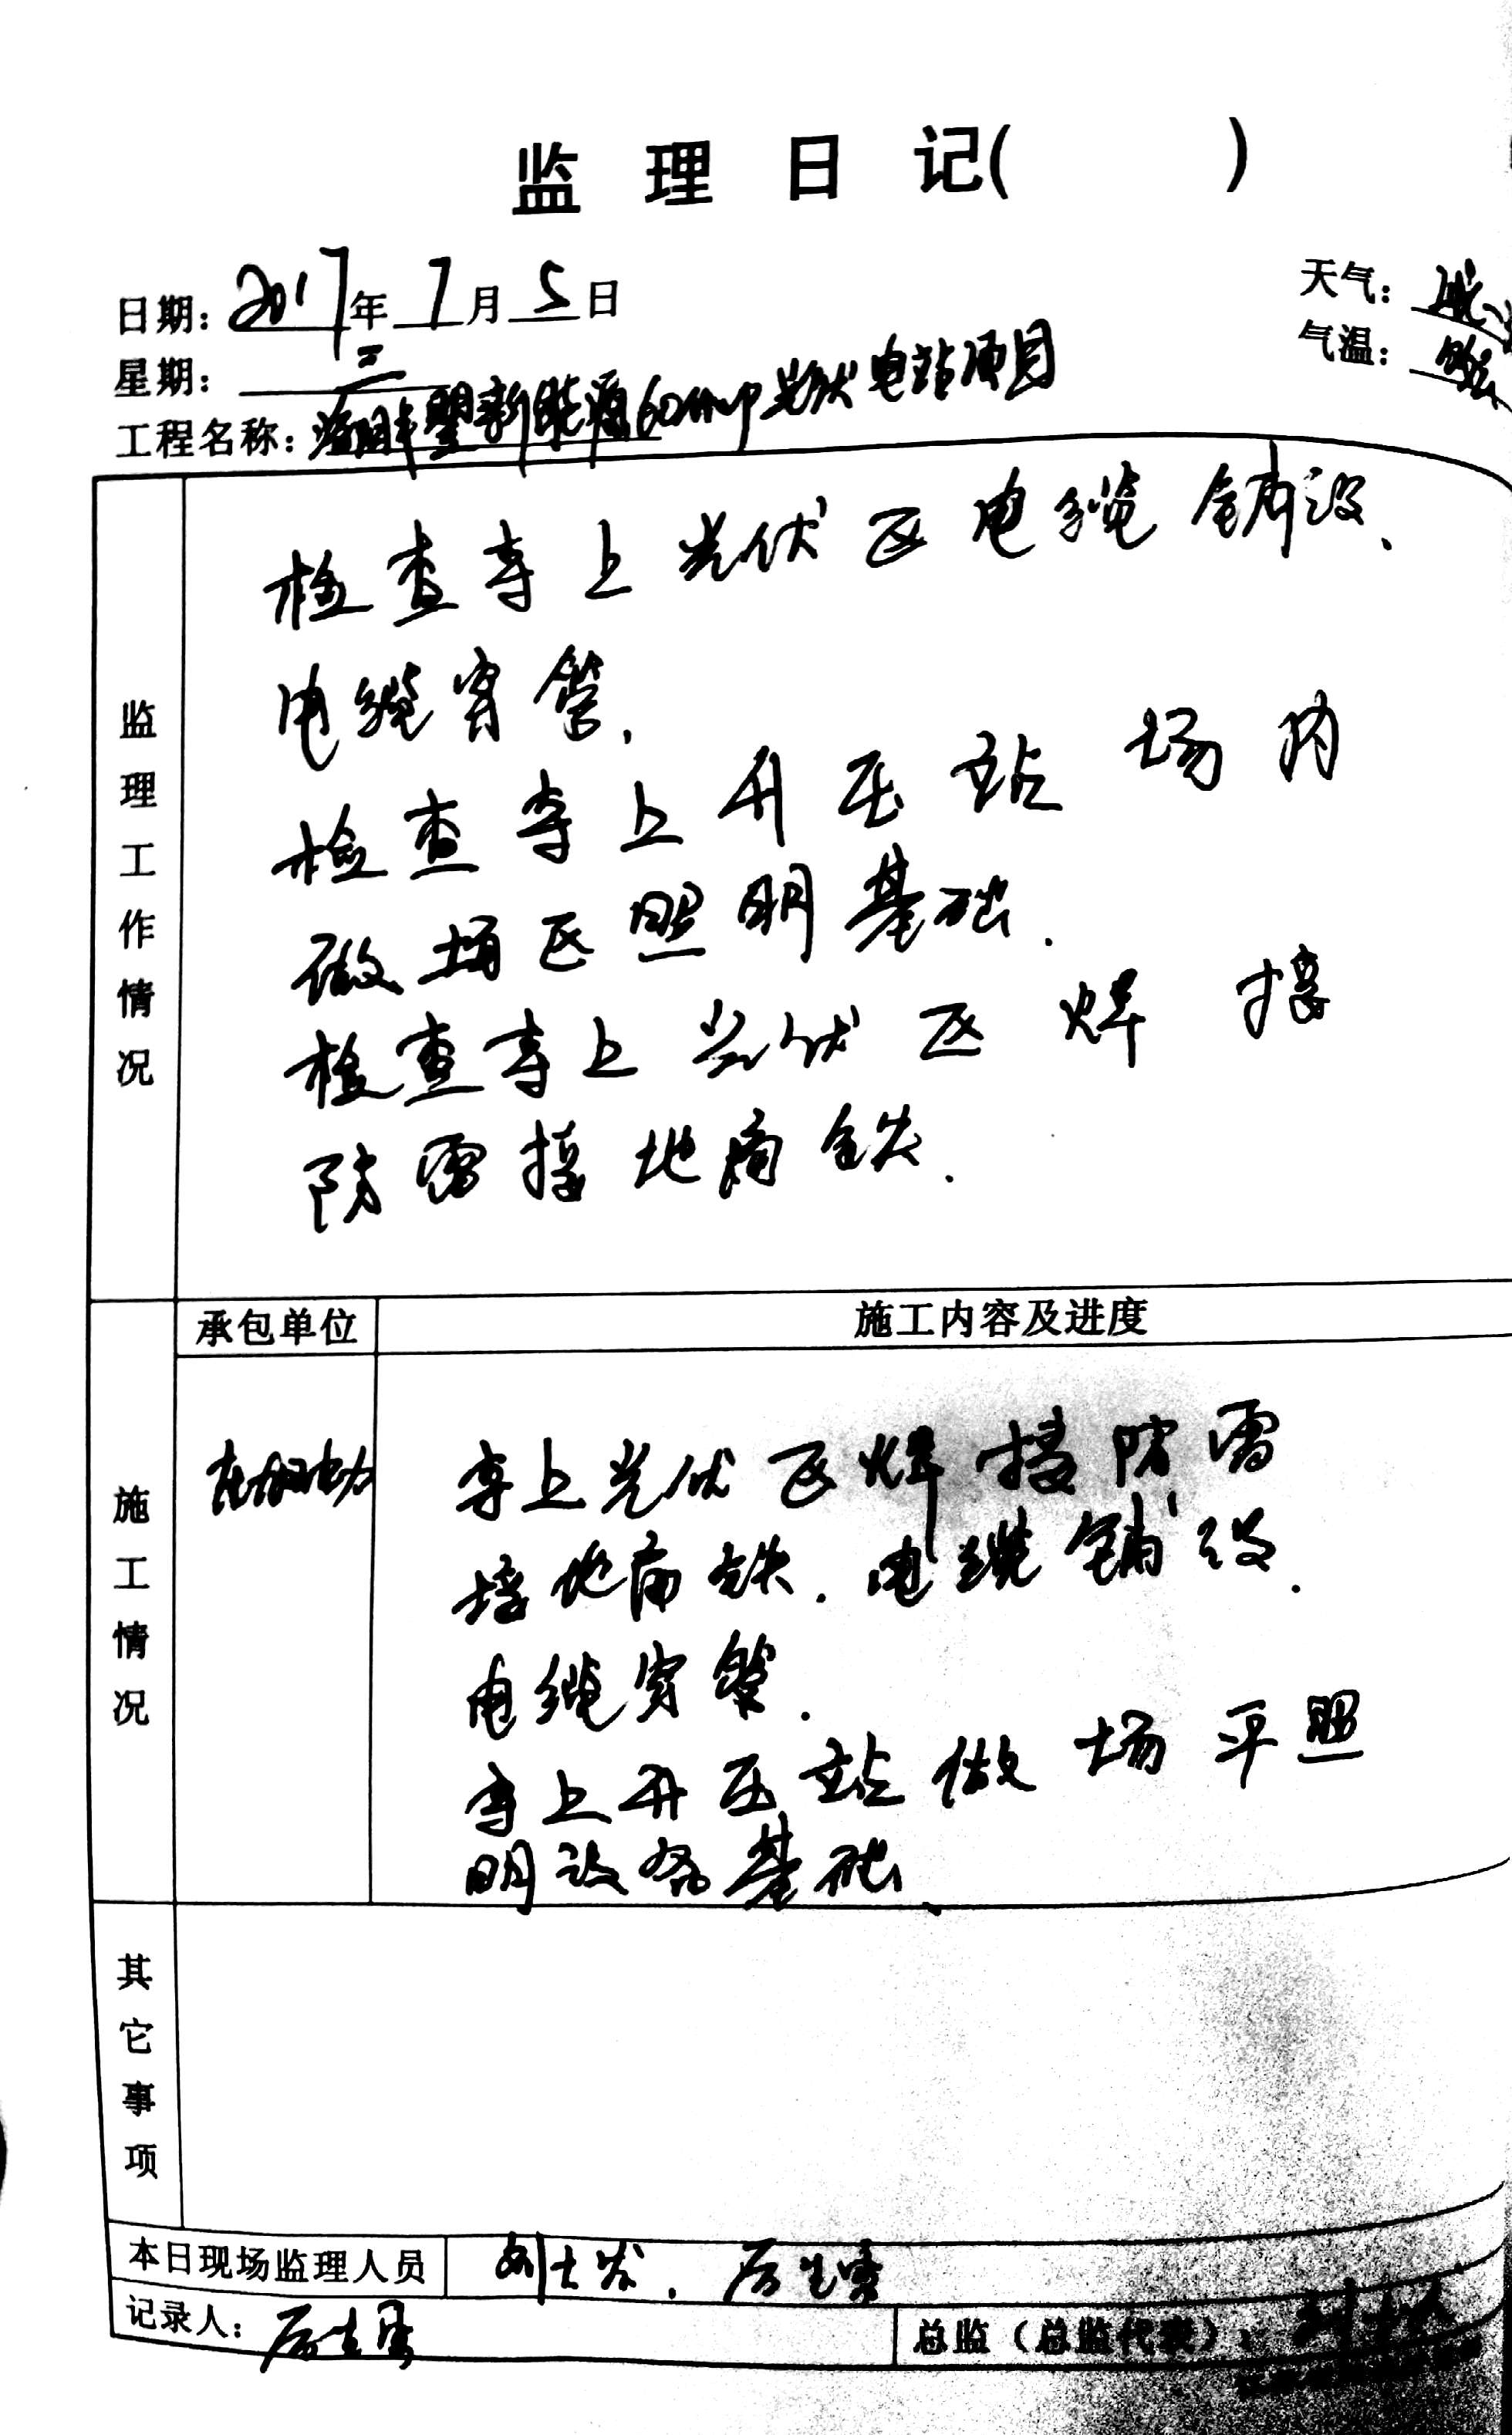 监理日记( )
日期: 2017年7月5日
天气:
星期: 三
气温:
工程名称: 盟新能源60MWp光伏电站项目
监理工作情况
检查寺上光伏区电缆铺设、
电缆穿管.
检查寺上升压站场内
做场区照明基础.
检查寺上光伏区焊接
防雷接地扁铁.
施工情况
承包单位
施工内容及进度
寺上光伏区焊接防雷
接地扁铁.电缆铺设.
电缆穿管.
寺上升压站做场平照
明设备基础.
其它事项
本日现场监理人员
记录人:
总监(总监代表):